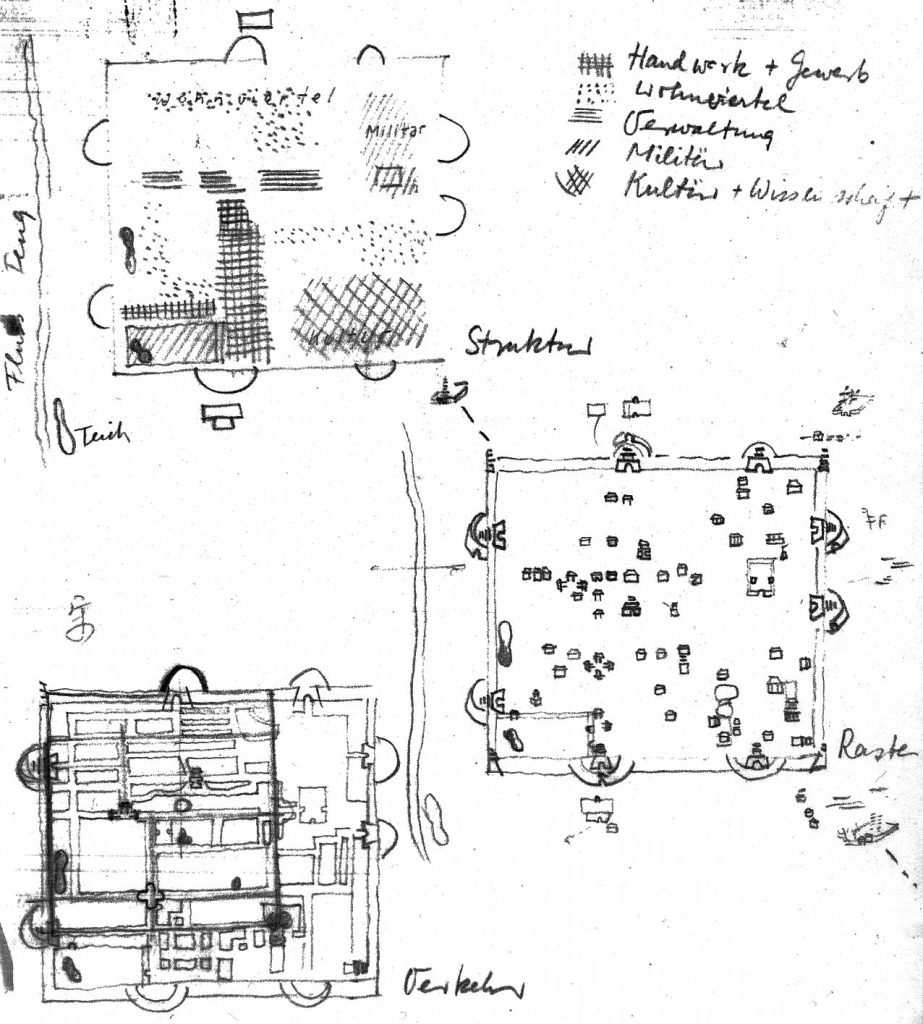 Handwerk + Gewerb
Wohnviertel
Verwaltung
Militär
Kultur + Wissenschaft
Wohnviertel
Militär
Fluss Teng
Kultur
Teich
Struktur
Raster
Verkehr